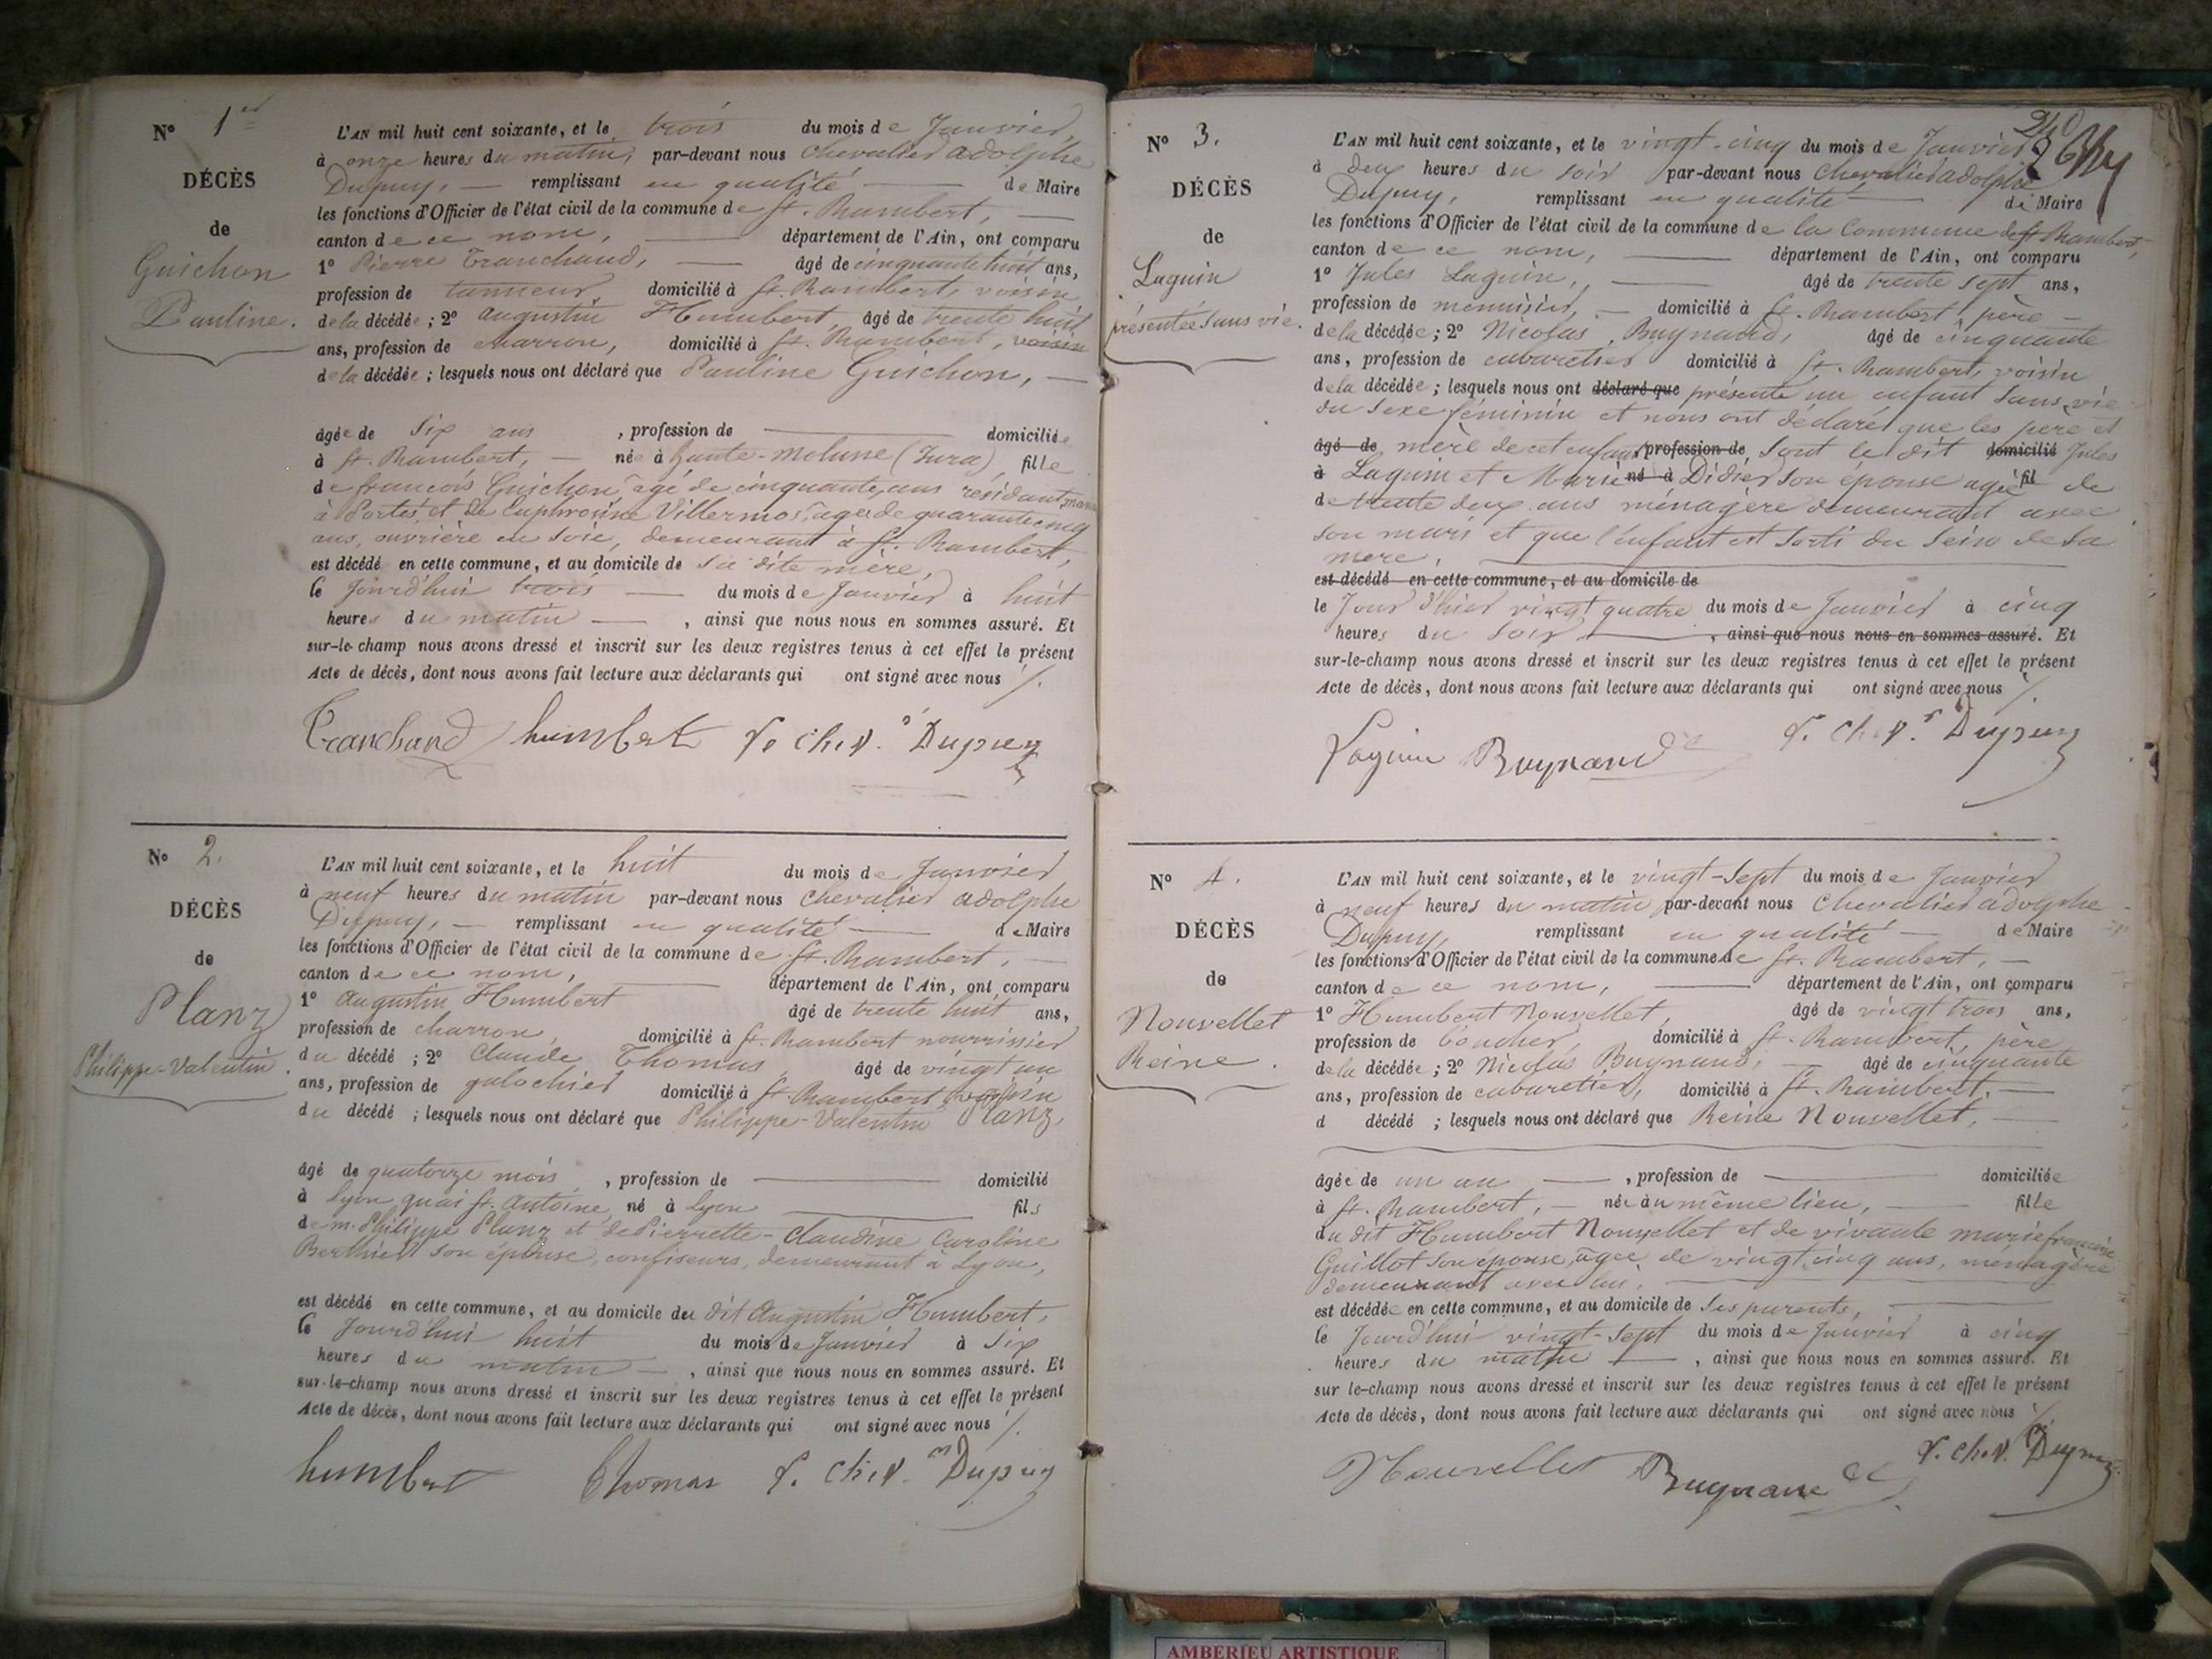 N° 1er
DÉCÈS
de
Guichon
Pauline.
L'AN mil huit cent soixante, et le trois du mois de Janvier,
à onze heures du matin, par-devant nous Chevalier adolphe
Dupuy, — remplissant en qualité — de Maire
les fonctions d'Officier de l'état civil de la commune de St. Rambert, —
canton de ce nom, — département de l'Ain, ont comparu
1° Pierre Tranchand, — âgé de cinquante huit ans,
profession de tanneur, domicilié à St. Rambert, voisin
de la décédée ; 2° augustin Humbert, âgé de trente huit
ans, profession de charron, domicilié à St. Rambert, voisin
de la décédée ; lesquels nous ont déclaré que Pauline Guichon, —
âgée de Six ans , profession de — domiciliée
à St. Rambert, — née à haute-Molune (Jura), fille
de françois Guichon, âgé de cinquante ans résidant
à Portes, et de Euphrosine Villermoz, agée de quarante cinq
ans, ouvrière en soie, demeurant à St. Rambert,
est décédé en cette commune, et au domicile de sa dite mère,
le Jourd'hui trois — du mois de Janvier à huit
heures du matin — , ainsi que nous nous en sommes assuré. Et
sur-le-champ nous avons dressé et inscrit sur les deux registres tenus à cet effet le présent
Acte de décès, dont nous avons fait lecture aux déclarants qui ont signé avec nous ./.
Tranchand humbert Dupuy
N° 2.
DÉCÈS
de
Planz
Philippe-Valentin.
L'AN mil huit cent soixante, et le huit du mois de Janvier
à neuf heures du matin par-devant nous Chevalier adolphe
Dupuy, — remplissant en qualité — de Maire
les fonctions d'Officier de l'état civil de la commune de St. Rambert, —
canton de ce nom, — département de l'Ain, ont comparu
1° Augustin Humbert âgé de trente huit ans,
profession de charron, domicilié à St. Rambert nourrissier
du décédé ; 2° Claude Thomas, âgé de vingt un
ans, profession de galochier domicilié à St. Rambert, voisin
du décédé ; lesquels nous ont déclaré que Philippe-Valentin Planz,
âgé de quatorze mois, , profession de — domicilié
à Lyon quai St. Antoine, né à Lyon — fils
de m. Philippe Planz et de Pierrette-Claudine Caroline
Berthier son épouse, confiseurs, demeurant à Lyon,
est décédé en cette commune, et au domicile du dit Augustin Humbert,
le Jourd'hui huit du mois de Janvier à Six
heures du matin — , ainsi que nous nous en sommes assuré. Et
sur-le-champ nous avons dressé et inscrit sur les deux registres tenus à cet effet le présent
Acte de décès, dont nous avons fait lecture aux déclarants qui ont signé avec nous ./.
humbert Thomas Dupuy
240
N° 3.
DÉCÈS
de
Laguin
présentée sans vie.
L'AN mil huit cent soixante, et le vingt-cinq du mois de Janvier
à deux heures du soir par-devant nous Chevalier adolphe
Dupuy, remplissant en qualité — de Maire
les fonctions d'Officier de l'état civil de la commune de la Commune de St Rambert,
canton de ce nom, — département de l'Ain, ont comparu
1° Jules Laguin, — âgé de trente sept ans,
profession de menuisier, — domicilié à St. Rambert, père —
de la décédée ; 2° Nicolas Buynand, âgé de cinquante
ans, profession de cabaretier domicilié à St. Rambert, voisin
de la décédée ; lesquels nous ont déclaré que présenté un enfant sans vie
du sexe féminin et nous ont déclaré que les père et
âgé de mère de cet enfant profession de sont le dit domicilié Jules
à Laguin et Marie né à Didier son épouse agée fil de
de trente deux ans ménagère demeurant avec
son mari et que l'enfant est sorti du sein de sa
mère, —
est décédé en cette commune, et au domicile de
le Jour d'hier vingt quatre du mois de Janvier à cinq
heures du soir — , ainsi que nous nous en sommes assuré. Et
sur-le-champ nous avons dressé et inscrit sur les deux registres tenus à cet effet le présent
Acte de décès, dont nous avons fait lecture aux déclarants qui ont signé avec nous ./.
Laguin Buynand Dupuy
N° 4.
DÉCÈS
de
Nouvellet
Reine.
L'AN mil huit cent soixante, et le vingt-sept du mois de Janvier
à neuf heures du matin par-devant nous Chevalier adolphe
Dupuy, remplissant en qualité — de Maire
les fonctions d'Officier de l'état civil de la commune de St. Rambert, —
canton de ce nom, — département de l'Ain, ont comparu
1° Humbert Nouvellet, âgé de vingt trois ans,
profession de boucher, domicilié à St. Rambert, père
de la décédée ; 2° Nicolas Buynand, — âgé de cinquante
ans, profession de cabaretier, domicilié à St. Rambert, —
d décédé ; lesquels nous ont déclaré que Reine Nouvellet, —
âgée de un an — , profession de — domiciliée
à St. Rambert, — née au même lieu, — fille
du dit Humbert Nouvellet et de vivante marie françoise
Guillot son épouse, âgée de vingt cinq ans, ménagère
demeurant avec lui. —
est décédée en cette commune, et au domicile de ses parents, —
le Jourd'hui vingt-sept du mois de Janvier à cinq
heures du matin — , ainsi que nous nous en sommes assuré. Et
sur le-champ nous avons dressé et inscrit sur les deux registres tenus à cet effet le présent
Acte de décès, dont nous avons fait lecture aux déclarants qui ont signé avec nous ./.
Nouvellet Buynand Dupuy
AMBERIEU ARTISTIQUE